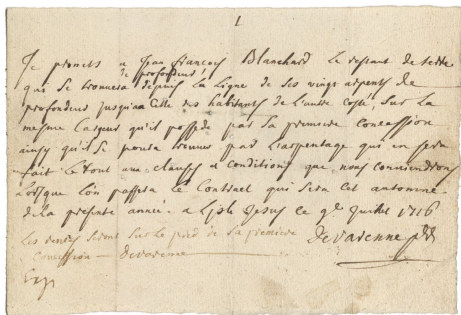 1
Je promets a Jean francois Blanchard Le restant de terre
de profondeur
qui se trouvera depuis La Ligne de ses vingt arpents de
profondeur jusqu'aux des habitants de L'autre costé, sur La
mesme Largeur qu'il possede par sa premiere concession
ainsy qu'il se poura trouver par L'arpentage qui en sera
fait Le tout aux clauses et conditions que nous conviendrons
Lorsque L'on passera Le Contract qui sera cet automne
de La presente année. a L'isle Jesus ce 9e Juillet 1716
Les rentes seront sur Le pied de La premiere
Devarenne
concession — Devarenne